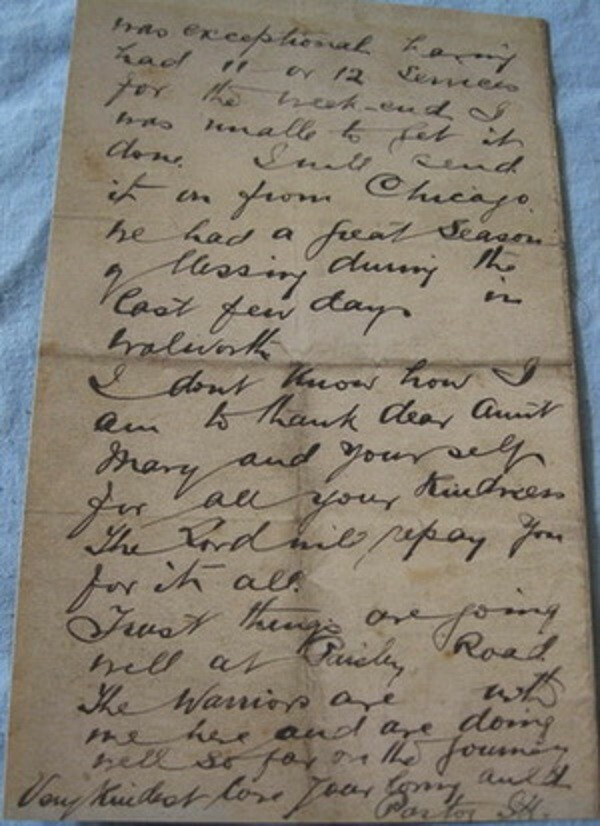 was exceptional having
had 11 or 12 Services
for the week-end I
was unable to get it
done. I will send
it on from Chicago.
We had a great Season
of blessing during the
last few days in
Walworth
I dont know how I
am to thank dear Aunt
Mary and yourself
for all your kindness
The Lord will repay you
for it all.
Trust things are going
well at Paisley Road
The Warriors are with
me here and are doing
well so far on the journey
Very kindest love Your loving
Pastor